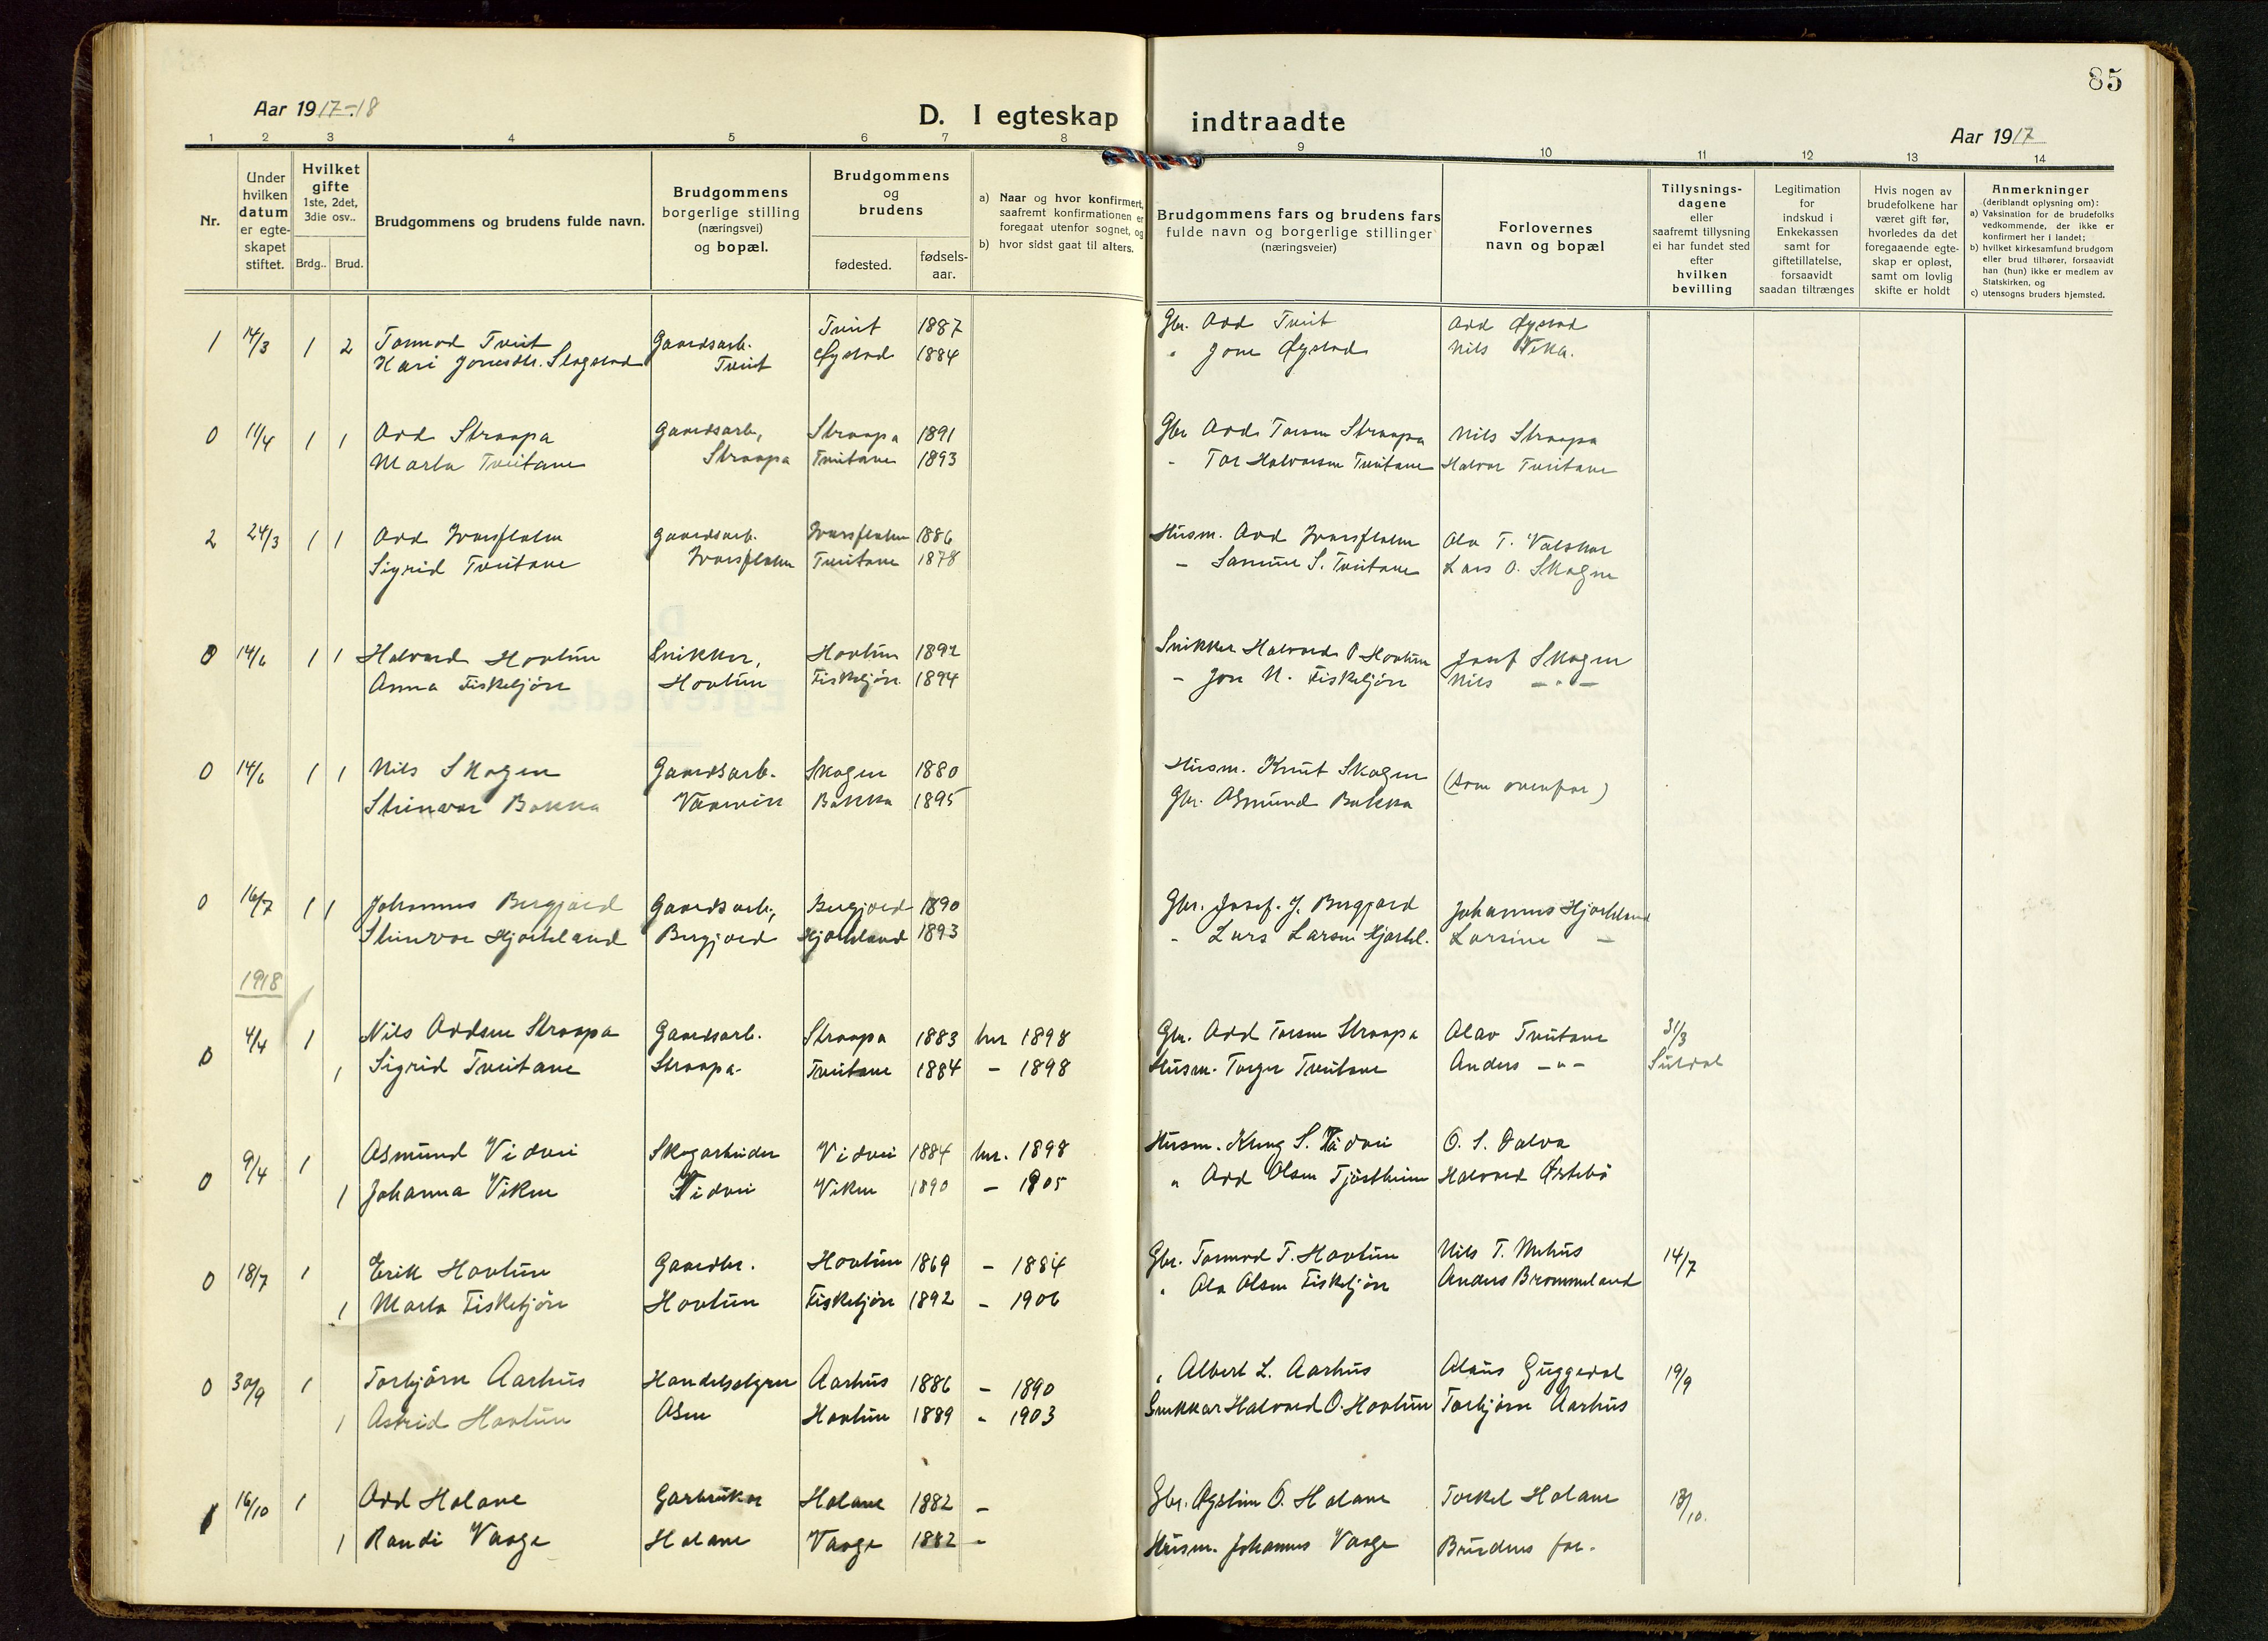 85
Aar 1917-18
D. I egteskap indtraadte
Aar 1917
1 2 3 4 5 6 7 8 9 10 11 12 13 14
Nr.
Under hvilken datum er egteskapet stiftet.
Hvilket gifte 1ste, 2det, 3die osv..
Brdg.. Brud.
Brudgommens og brudens fulde navn.
Brudgommens borgerlige stilling (næringsvei) og bopæl.
Brudgommens og brudens
fødested. fødsels-aar.
a) Naar og hvor konfirmert, saafremt konfirmationen er foregaat utenfor sognet, og
b) hvor sidst gaat til alters.
Brudgommens fars og brudens fars fulde navn og borgerlige stillinger (næringsveier)
Forlovernes navn og bopæl
Tillysnings-dagene eller saafremt tillysning ei har fundet sted efter hvilken bevilling
Legitimation for indskud i Enkekassen samt for giftetillatelse, forsaavidt saadan tiltrænges
Hvis nogen av brudefolkene har været gift før, hvorledes da det foregaaende egte-skap er opløst, samt om lovlig skifte er holdt
Anmerkninger (deriblandt oplysning om):
a) Vaksination for de brudefolks vedkommende, der ikke er konfirmert her i landet;
b) hvilket kirkesamfund brudgom eller brud tilhører, forsaavidt han (hun) ikke er medlem av Statskirken, og
c) utensogns bruders hjemsted.
1 14/3 1 2 Tormod Tveit Gaardsarb. Tveit 1887 Gbr. Odd Tveit Odd Øystad
Kari Jonesdtr. Slagstad Tveit Øystad 1884 " Jone Øystad Nils Vika.
0 11/4 1 1 Odd Straapa Gaardsarb, Straapa 1891 Gbr Odd Torsen Straapa Nils Straapa
Marta Tveitane Straapa Tveitane 1893 - Tor Halvorsen Tveitane Halvor Tveitane
2 24/3 1 1 Odd Ivarsflaten Gaardsarb. Ivarsflaten 1886 Husm. Odd Ivarsflaten Ola T. Valskar
Sigrid Tveitane Ivarsflaten Tveitane 1878 - Samuel S. Tveitane Lars O. Skogen
0 14/6 1 1 Halvard Hovtun Snikker, Hovtun 1892 Snikker Halvard O Hovtun Josef Skogen
Anna Fisketjøn Hovtun Fisketjøn 1894 - Jon N. Fisketjøn Nils - " -
0 14/6 1 1 Nils Skogen Gaardsarb. Skogen 1880 Husm. Knut Skogen (som ovenfor)
Steinvor Bakka Vaarvik Bakka 1895 Gbr. Asmund Bakka
0 16/7 1 1 Johannes Bergjord Gaardsarb, Bergjord 1890 Gbr. Josef. J. Bergjord Johannes Hjorteland
Steinvor Hjorteland Bergjord Hjorteland 1893 - Lars Larsen Hjortel. Larsine -
1918
0 4/4 1 Nils Oddsen Straapa Gaardsarb. Straapa 1883 her 1898 Gbr. Odd Torsen Straapa Olav Tveitane 31/3
1 Sigrid Tveitane Straapa. Tveitane 1884 - 1898 Husm. Torger Tveitane Anders - " - Suldal
0 9/4 1 Asmund Vidvei Skogarbeider Vidvei 1884 her. 1898 Husm. Kleng S. Vidvei O. S. Dalva
1 Johanna Viken Vidvei Viken 1890 - 1905 " Odd Olsen Tjøstheim Halvard Østebø
0 18/7 1 Erik Hovtun Gaardbr. Hovtun 1869 - 1884 Gbr. Tormod T. Hovtun Nils T. Mehus 14/7
1 Marta Fisketjøn Hovtun Fisketjøn 1892 - 1906 " Ola Olsen Fisketjøn Anders Brommeland
0 30/9 1 Torbjørn Aarhus Handelsbetjent Aarhus 1886 - 1890 " Albert L. Aarhus Olaus Guggedal 19/9
1 Astrid Hovtun Osen Hovtun 1889 - 1903 Snekkar Halvard O. Hovtun Torbjørn Aarhus
16/10 1 Odd Halane Garbruker Halane 1882 - Gbr. Øystein O. Halane Torkel Halane 13/10.
1 Randi Vaage Halane Vaage 1882 - Husm. Johannes Vaage Brudens far.